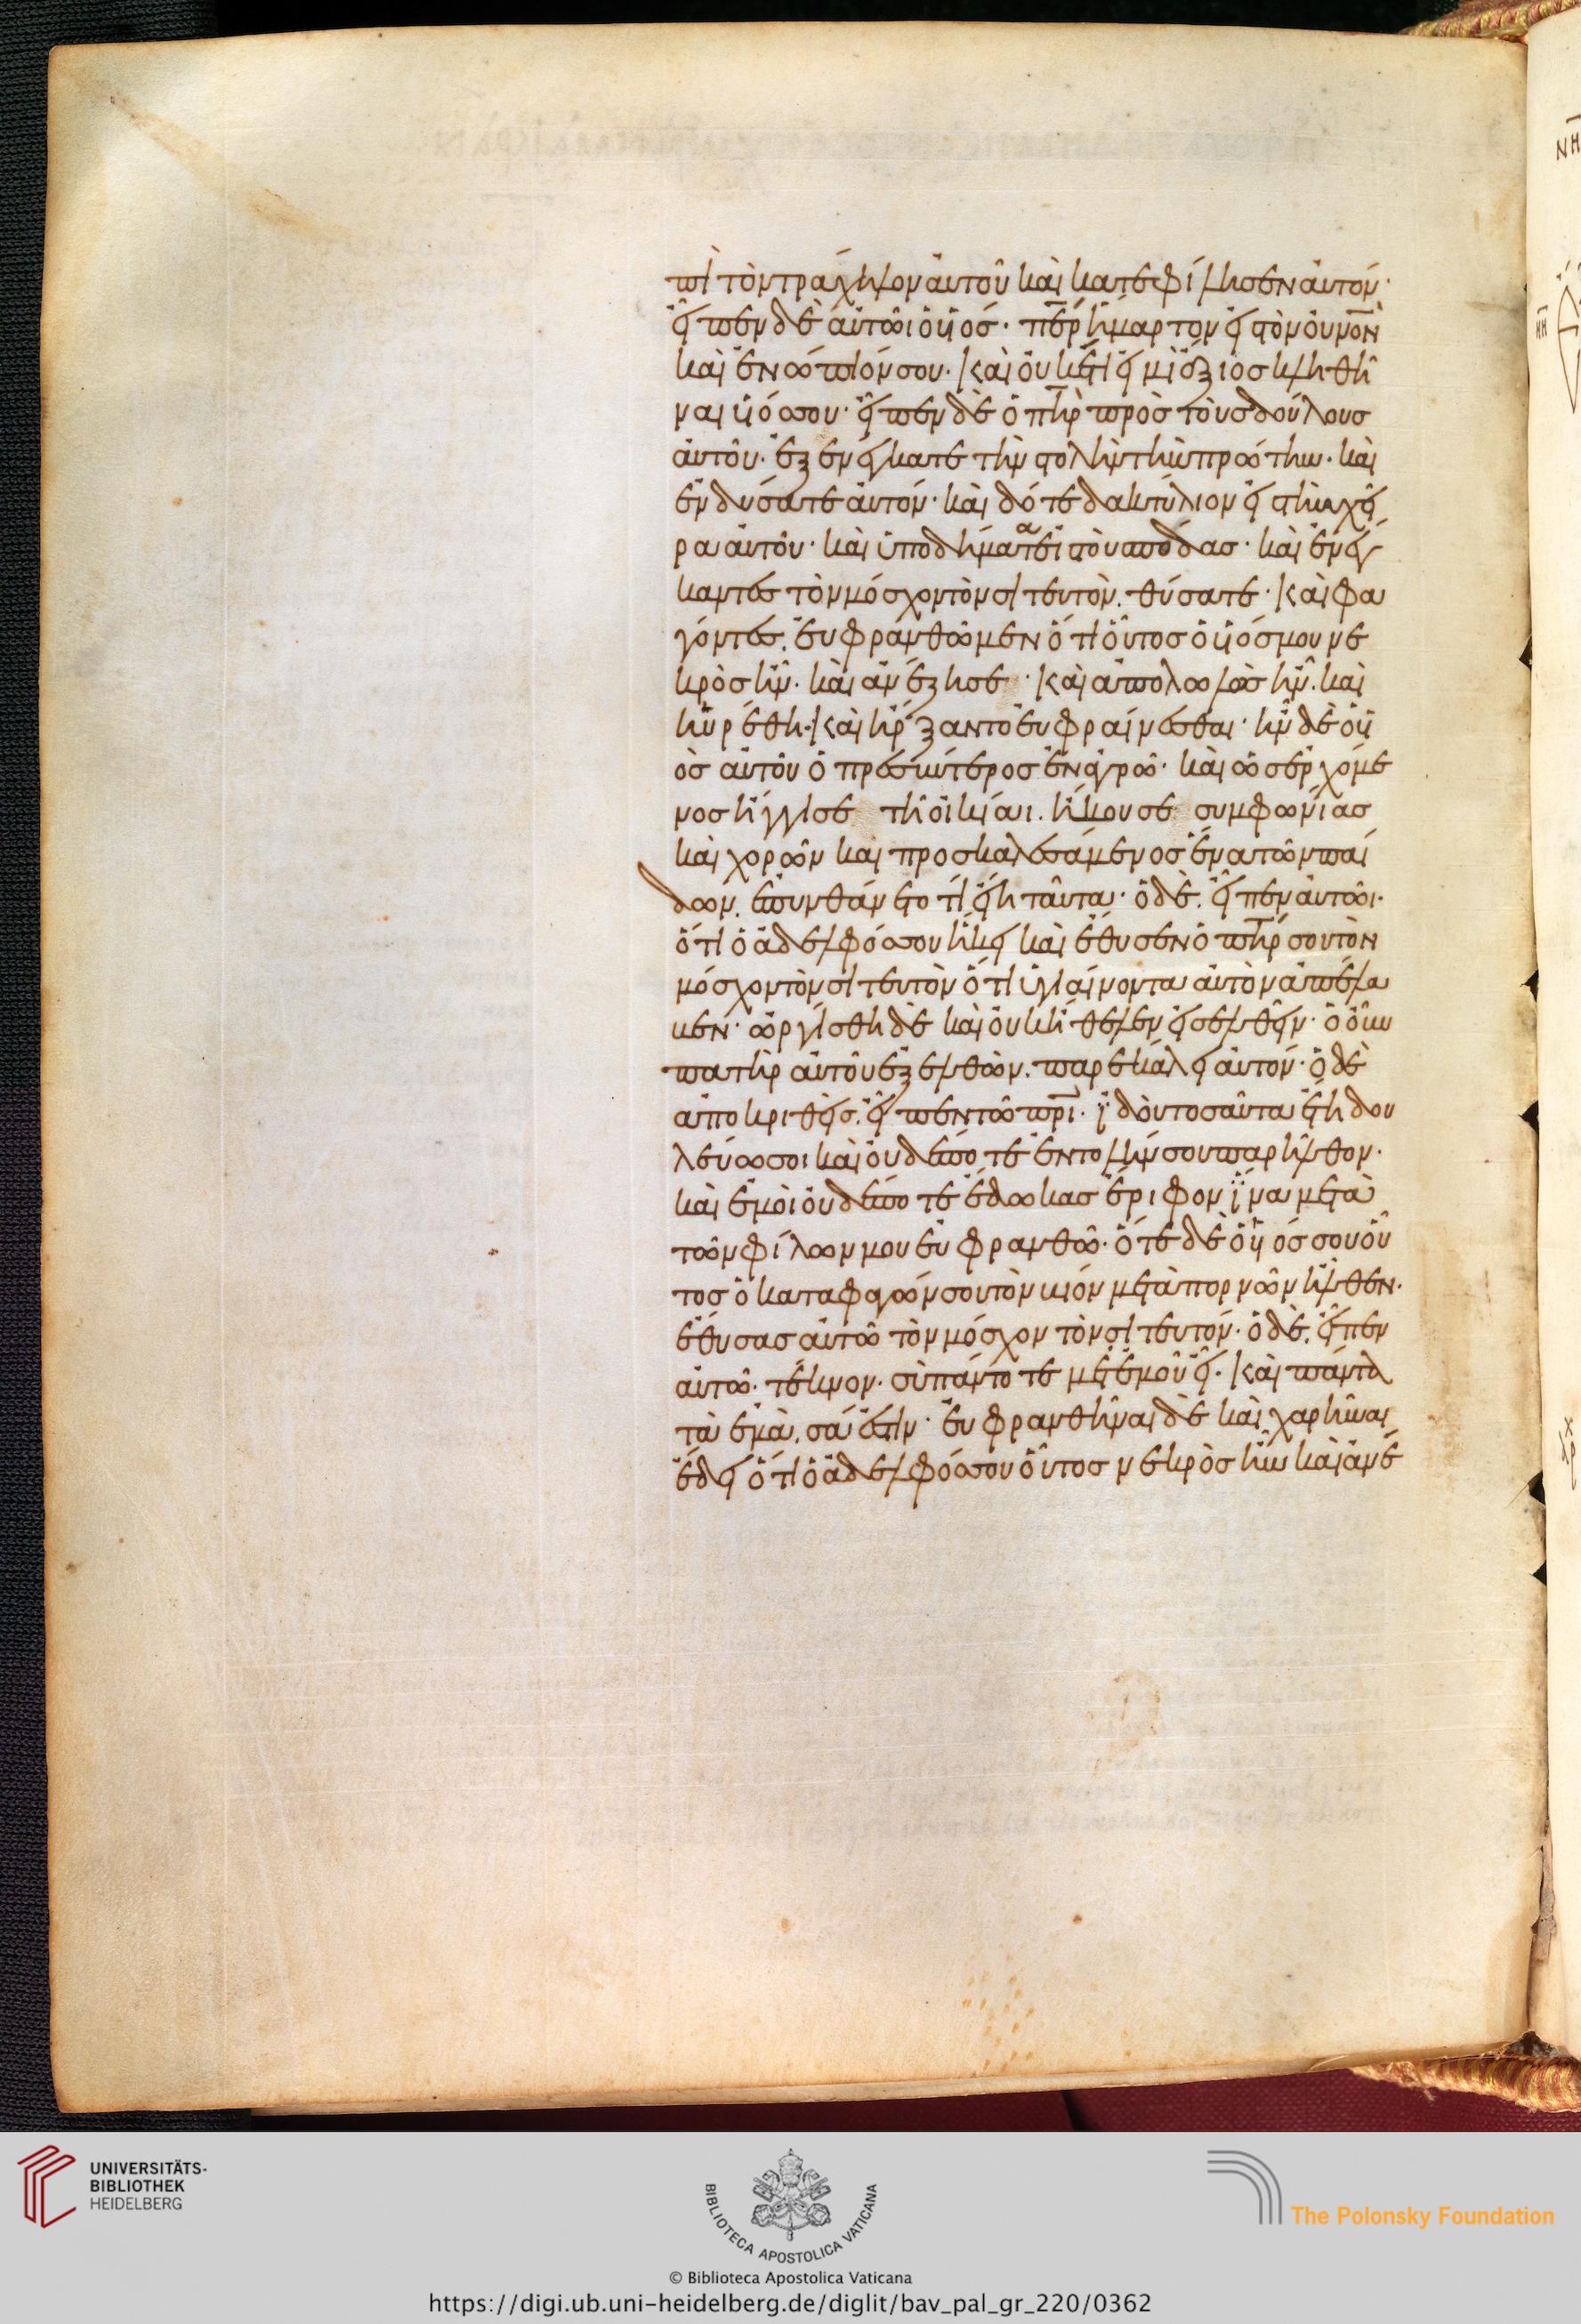 πὶ τὸν τράχηλον αὐτοῦ καὶ κατεφίλησεν αὐτόν·
εἶπεν δὲ αὐτῶι ὁ υἱός· περ ἥμαρτον εἰς τὸν οὐνὸν
καὶ ἐνώπιόν σου· καὶ οὐκέτι εἰμὶ ἄξιος κληθῆ
ναι υἱός σου· εἶπεν δὲ ὁ πηρ πρὸς τοὺς δούλους
αὐτοῦ· ἐξενέγκατε τὴν στολὴν τὴν πρώτην· καὶ
ἐνδύσατε αὐτόν· καὶ δότε δακτύλιον εἰς τὴν χεῖ
ρα αὐτοῦ· καὶ ὑποδήματα εἰς τοὺς πόδας· καὶ ἐνέγ
καντες τὸν μόσχον τὸν σιτευτὸν. θύσατε· καὶ φα
γόντες. εὐφρανθῶμεν ὅτι οὗτος ὁ υἱός μου νε
κρὸς ἦν· καὶ ἀνέζησε· καὶ ἀπολωλὼς ἦν. καὶ
ηὑρέθη· καὶ ἤρξαντο εὐφραίνεσθαι· ἦν δὲ ὁ υἱ
ὸς αὐτοῦ ὁ πρεσβύτερος ἐν ἀγρῶ· καὶ ὡς ἐρχόμε
νος ἤγγισε τῆ οἰκίαι. ἤκουσε συμφωνίας
καὶ χορῶν καὶ προσκαλεσάμενος ἕνα τῶν παί
δων. ἐπυνθάνετο τί εἴη ταῦτα· ὁ δὲ. εἶπεν αὐτῶι·
ὅτι ὁ ἀδελφός σου ἥκει καὶ ἔθυσεν ὁ πηρ σου τὸν
μόσχον τὸν σιτευτὸν ὅτι ὑγιαίνοντα αὐτὸν ἀπέλα
βεν· ὠργίσθη δὲ καὶ οὐκ ἤθελεν εἰσελθεῖν· ὁ οὖν
πατὴρ αὐτοῦ ἐξελθὼν. παρεκάλει αὐτόν· ὁ δὲ
ἀποκριθεὶς. εἶπεν τῶ πρι· ἰδοὺ τοσαῦτα ἔτη δου
λεύω σοι καὶ οὐδέποτε ἐντολήν σου παρῆλθον·
καὶ ἐμοὶ οὐδέποτε ἔδωκας ἔριφον ἵνα μετὰ
τῶν φίλων μου εὐφρανθῶ· ὅτε δὲ ὁ υἱός σου οὗ
τος ὁ καταφαγών σου τὸν βίον μετὰ πορνῶν ἦλθεν·
ἔθυσας αὐτῶ τὸν μόσχον τὸν σιτευτόν· ὁ δὲ. εἶπεν
αὐτῶ· τέκνον· σὺ πάντοτε μετ' ἐμοῦ εἶ· καὶ πάντα
τὰ ἐμὰ. σά ἐστιν· εὐφρανθῆναι δὲ καὶ χαρῆναι
ἔδει ὅτι ὁ ἀδελφός σου οὗτος νεκρὸς ἦν καὶ ἀνέ
UNIVERSITÄTS-
BIBLIOTHEK
HEIDELBERG
BIBLIOTECA APOSTOLICA VATICANA
The Polonsky Foundation
© Biblioteca Apostolica Vaticana
https://digi.ub.uni-heidelberg.de/diglit/bav_pal_gr_220/0362